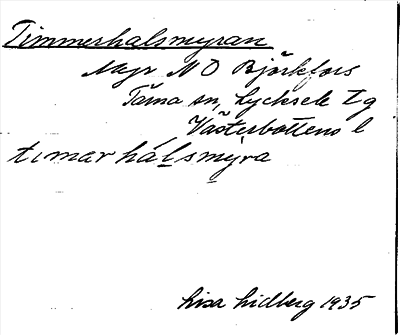 Timmerhalsmyran
Myr N O Björkfors
Tärna sn, Lycksele tg
Västerbottens l
tımarhálsmy̱ra
Lisa Lidberg 1935